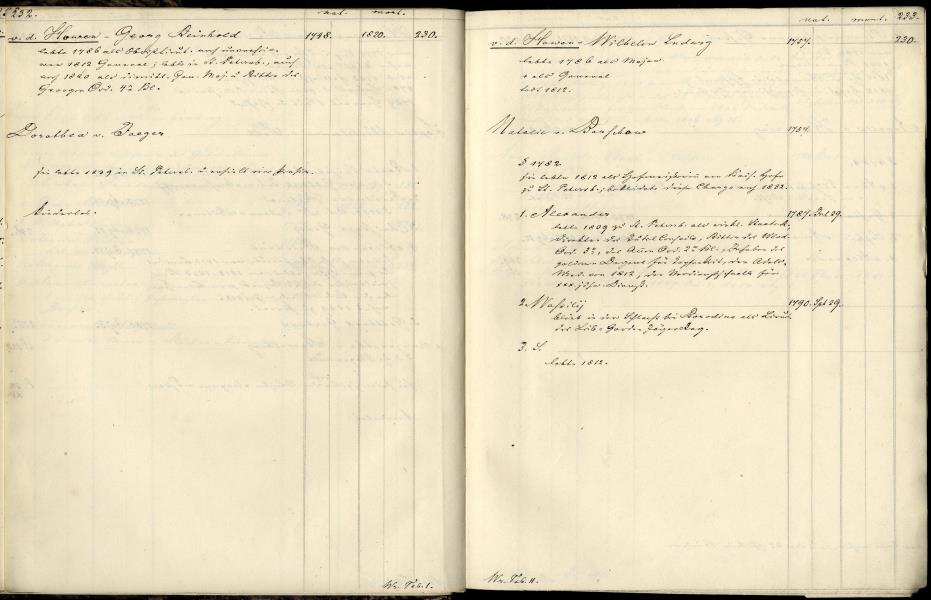 232.
nat. mort.
v. d. Howen - Georg Reinhold 1748. 1820. 230.
lebte 1786 als Obristlieut. auf
war 1812 General; lebte in St. Petersb., auch
noch 1820 als dimitt. Gen. Maj. u. Ritter des
Georgen Ord. 4r Kl.
Dorothea v. Jaeger
sie lebte 1829 in St. Petersb. u. erhielt eine Pension.
Kinderlos.
Wr. Tab. I.
nat. mort. 233.
v. d. Howen - Wilhelm Ludwig 1757. 230.
lebte 1786 als Major
† als General
1812.
Natalie v. 1757.
1782
sie lebte 1812 als Hofmeisterin am Kais. Hofe
zu St. Petersb.; bekleidete diese Charge noch 1822.
1. Alexander 1787. 29.
lebte 1809 zu St. Petersb. als wirkl. Staatsr.,
Direktor des Conseils, Ritter des Wlad.
Ord. 3r, des Annen Ord. 2r Kl., Inhaber des
goldnen Degens für Tapferkeit, der Adels-
Med. von 1812, der Verdienstschnalle für
xxx jähr. Dienst.
2. Wassilij 1790. Spt 29.
blieb in der Schlacht bei Borodino als Lieut.
des Leib-Garde-Jäger Reg.
3. S.
lebte 1812.
Wr. Tab. II.